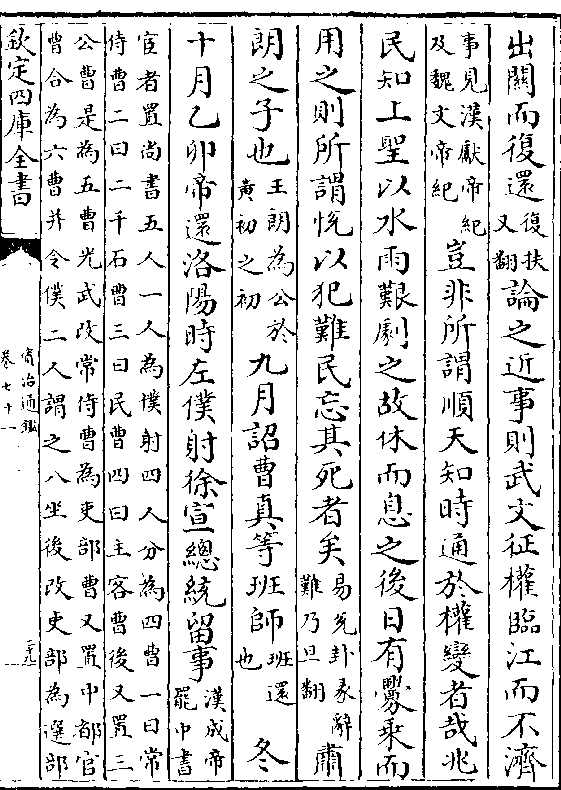 出關而復還復扶又翻論之近事則武文征權臨江而不濟
事見漢獻帝紀及魏文帝紀豈非所謂順天知時通於權變者哉兆
民知上聖以水雨艱劇之故休而息之後日有釁乘而
用之則所謂恱以犯難民忘其死者矣易兌卦彖辭難乃旦翻肅
朗之子也王朗為公於黄初之初九月詔曹真等班師班還也冬
十月乙卯帝還洛陽時左僕射徐宣總統留事漢成帝罷中書
宦者置尚書五人一人為僕射四人分為四曹一曰常
侍曹二曰二千石曹三曰民曹四曰主客曹後又置三
公曹是為五曹光武改常侍曹為吏部曹又置中都官
曹合為六曹并令僕二人謂之八坐後改吏部為選部
欽定四庫全書
資治通鑑
卷七十一
二十九